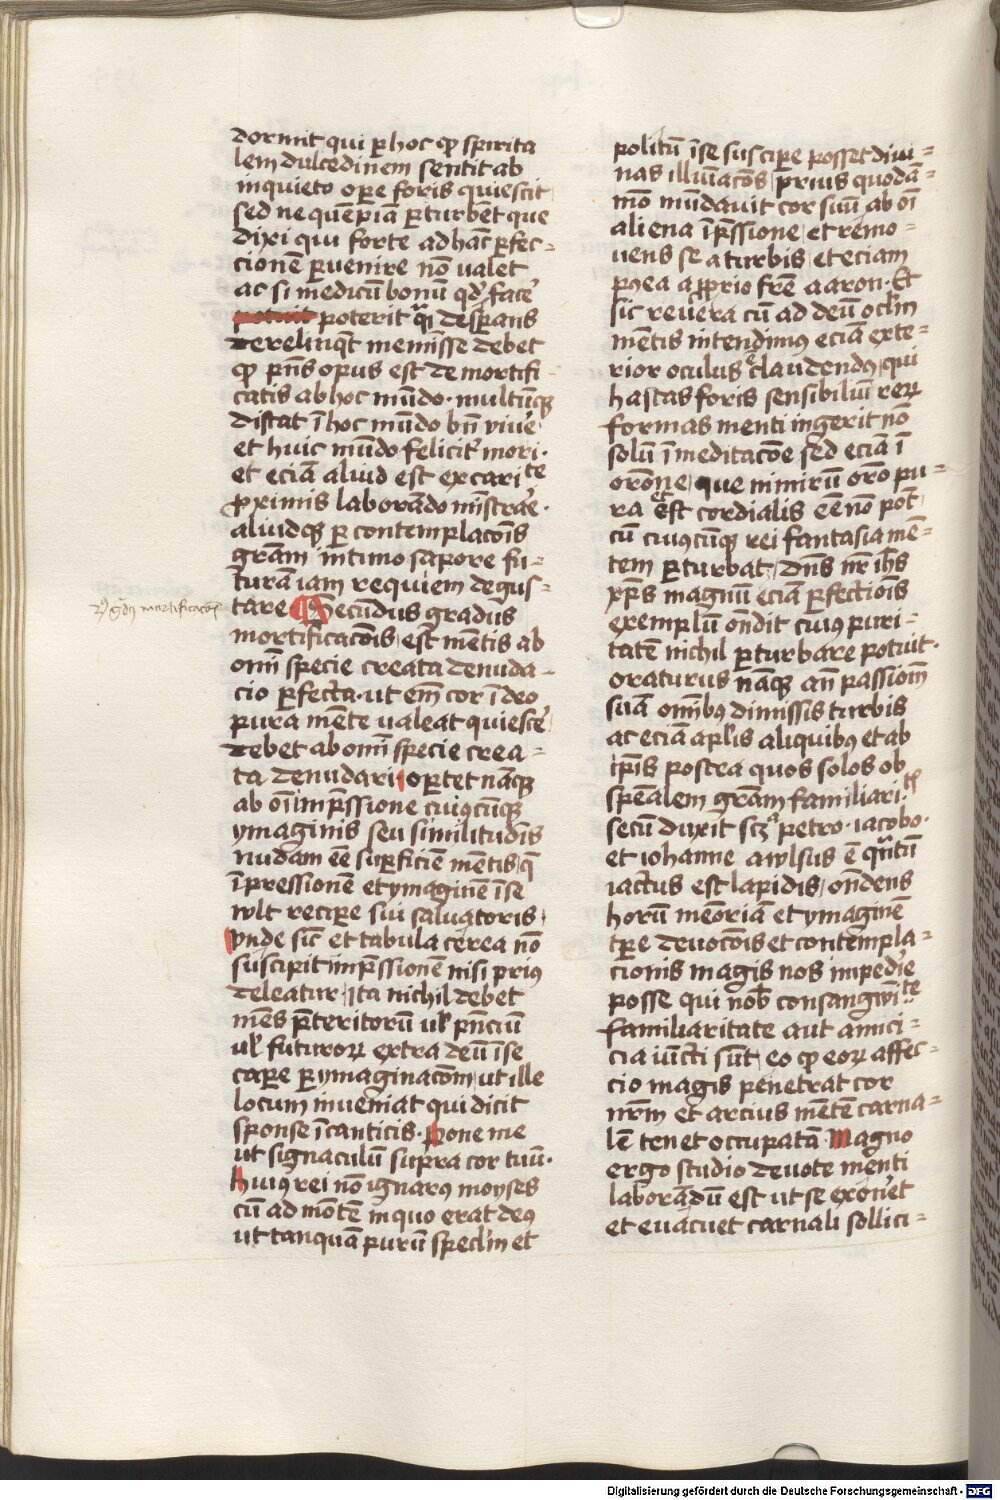 dormit qui p hoc qd spirita
lem dulcedinem sentit ab
inquieto opere foris quiescit
sed ne quēpiā pturbēt que
dixi qui forte ad hāc pfec-
cionē pvenire nō valet
ac si medicū bonū qd facē
potuit poterit desperans
derelinqt meminisse debet
qd pñs opus est de mortifi
catis ab hoc mūdo · multūqz
distat ī hoc mūdo bn̄ vivē
et huic mūdo felicit mori ·
et eciā aliud est ex carite
proximis laborādo mīstrare ·
aliudqz p contemplacōis
gram intimo sapore fu-
turā iam requiem degus-
tare Secūdus gradus
2 gdus mortificacōis
mortificacōis est mētis ab
omī specie creata denuda-
cio pfecta · ut em̄ cor ī deo
pura mēte valeat quiescē
debet ab omī specie crea-
ta denudari oportet nāqz
ab oī impssione cuiuscūqz
ymaginis seu similitudīs
nudam eē supficiē mētis q
īpressionē et ymaginē ī se
wlt recipe sui salvatoris
vnde sic et tabula cerea nō
suscipit impssionē nisi prius
deleatur Ita nichil debet
mēs pteritorū ul pñciū
ul futurorꝝ extra deū ī se
cape p ymaginacōm ut ille
locum inveniat qui dicit
sponse ī canticis · Pone me
ut signaculū supra cor tuū ·
Huius rei nō ignarus moyses
cū ad mōtē in quo erat deus
ut tanquā purū speclm et
politū ī se suscipe posset divi-
nas illuīacōs prius quodā-
mō mūdavit cor suū ab oī
aliena īpssione et remo-
vens se a turbis et eciam
pmea a pprio fre aaron · Et
sic revera cū ad deū oclm
mētis intendimus eciā exte-
rior oculus claudendus qui
hastas foris sensibiliū rerꝝ
formas menti ingerit nō
solū ī meditacōe sed eciā ī
orōne que nimirū orō pu-
ra et cordialis eē nō pot
cū cuiuscūqz rei fantasia mē-
tem pturbat Dn̄s nr ihs
xps magnū eciā pfectiois
exemplū ondit cuius puri-
tatē nichil pturbare potuit ·
oraturus nāqz an̄ passionē
suā omībus dimissis turbis
ac eciā aplis aliquibus et ab
ipis postea quos solos ob
spēalem gram familiaritē
secū duxit scz petro · iacobo ·
et iohanne awlsus ē quātū
iactus est lapidis ondens
horū memoriā et ymaginē
tpe devocōis et contempla-
cionis magis nos impedīe
posse qui nob consangwīte
familiaritate aut amici-
cia iūcti sūt eo qd eorꝝ affec-
cio magis penetrat cor
nrm et arcius mētē carna-
lē tenet occupatā · Magno
ergo studio devote menti
laborādū est ut se exonēt
et evacuet carnali sollici-
Digitalisierung gefördert durch die Deutsche Forschungsgemeinschaft - DFG